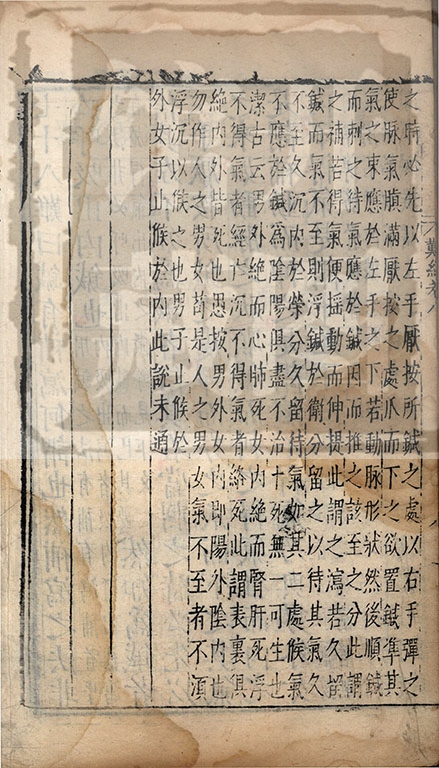 之時必先以左手厭按所鍼之處以右手彈之
使脉氣䐜滿厭按之處爪而下之欲置鍼準其
氣之來應於左手之下若動脉形狀然後順鍼
而刺之待氣應於鍼因而推之該至之分此謂
之補若得氣便摇動而伸提此謂之瀉若久留
鍼而氣不至則浮鍼於衛分留之以待其氣久
不至久沉内於榮分久留待氣如其二處候氣
不應於鍼爲陰陽俱盡不治十死無一可生也
潔古云男外絶而心肺死女内絶而腎肝死浮
不得氣者經亡沉不得氣者絡死此謂表裏俱
絶内外皆死也愚按男外女内即陽外陰内也
勿作人之男女苟是人之男女氣不至者不須
浮沉以候之也男子止候於
外女子止候於内此説未通
難經卷八